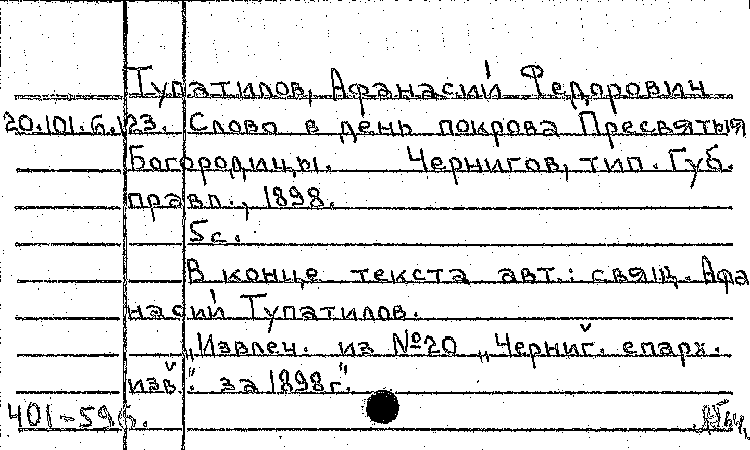 Тупатилов, Афанасий Федорович
20.101.6.123. Слово в день покрова Пресвятыя
Богородицы. Чернигов, тип. Губ.
правл., 1898.
5с.
В конце текста авт.: свящ. Афа
насий Тупатилов.
„Извлеч. из №20 „Черниг. епарх.
изв." за 1898г."
401-596.